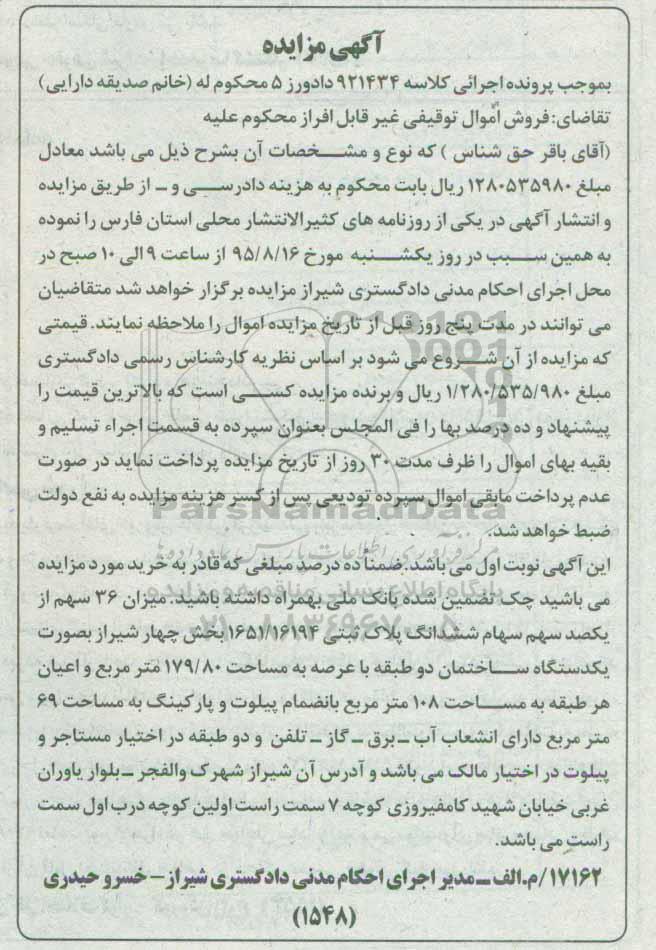 آگهی مزایده
بموجب پرونده اجرائی کلاسه ۹۲۱۴۳۴ دادورز ۵ محکوم له (خانم صدیقه دارایی)
تقاضای: فروش اموال توقیفی غیر قابل افراز محکوم علیه
(آقای باقر حق شناس ) که نوع و مشخصات آن بشرح ذیل می باشد معادل
مبلغ ۱۲۸۰۵۳۵۹۸۰ ریال بابت محکوم به هزینه دادرسی و ـ از طریق مزایده
و انتشار آگهی در یکی از روزنامه های کثیرالانتشار محلی استان فارس را نموده
به همین سبب در روز یکشنبه مورخ ۹۵/۸/۱۶ از ساعت ۹ الی ۱۰ صبح در
محل اجرای احکام مدنی دادگستری شیراز مزایده برگزار خواهد شد متقاضیان
می توانند در مدت پنج روز قبل از تاریخ مزایده اموال را ملاحظه نمایند. قیمتی
که مزایده از آن شروع می شود بر اساس نظریه کارشناس رسمی دادگستری
مبلغ ۱/۲۸۰/۵۳۵/۹۸۰ ریال و برنده مزایده کسی است که بالاترین قیمت را
پیشنهاد و ده درصد بها را فی المجلس بعنوان سپرده به قسمت اجراء تسلیم و
بقیه بهای اموال را ظرف مدت ۳۰ روز از تاریخ مزایده پرداخت نماید در صورت
عدم پرداخت مابقی اموال سپرده تودیعی پس از کسر هزینه مزایده به نفع دولت
ParsNamadData
ضبط خواهد شد.
مرکز فرآوری اطلاعات پارس نماد داده ها
این آگهی نوبت اول می باشد. ضمنا ده درصد مبلغی که قادر به خرید مورد مزایده
می باشید چک تضمین شده بانک ملی بهمراه داشته باشید. میزان ۳۶ سهم از
یکصد سهم سهام ششدانگ پلاک ثبتی ۱۶۵۱/۱۶۱۹۴ بخش چهار شیراز بصورت
یکدستگاه ساختمان دو طبقه با عرصه به مساحت ۱۷۹/۸۰ متر مربع و اعیان
هر طبقه به مساحت ۱۰۸ متر مربع بانضمام پیلوت و پارکینگ به مساحت ۶۹
متر مربع دارای انشعاب آب ـ برق ـ گاز ـ تلفن و دو طبقه در اختیار مستاجر و
پیلوت در اختیار مالک می باشد و آدرس آن شیراز شهرک والفجر ـ بلوار یاوران
غربی خیابان شهید کامفیروزی کوچه ۷ سمت راست اولین کوچه درب اول سمت
راست می باشد.
۱۷۱۶۲/م.الف ـ مدیر اجرای احکام مدنی دادگستری شیراز – خسرو حیدری
(۱۵۴۸)